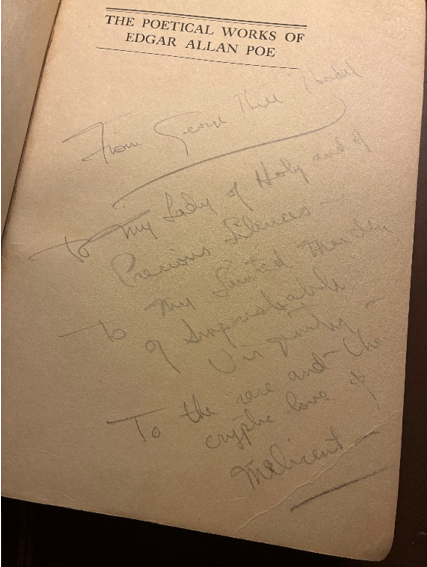 THE POETICAL WORKS OF
EDGAR ALLAN POE
From George
To My Lady of Holy and of
Precious Silences
To My Sainted Maiden
of Improbable
To the rare and the
cryptic love of
Melicent